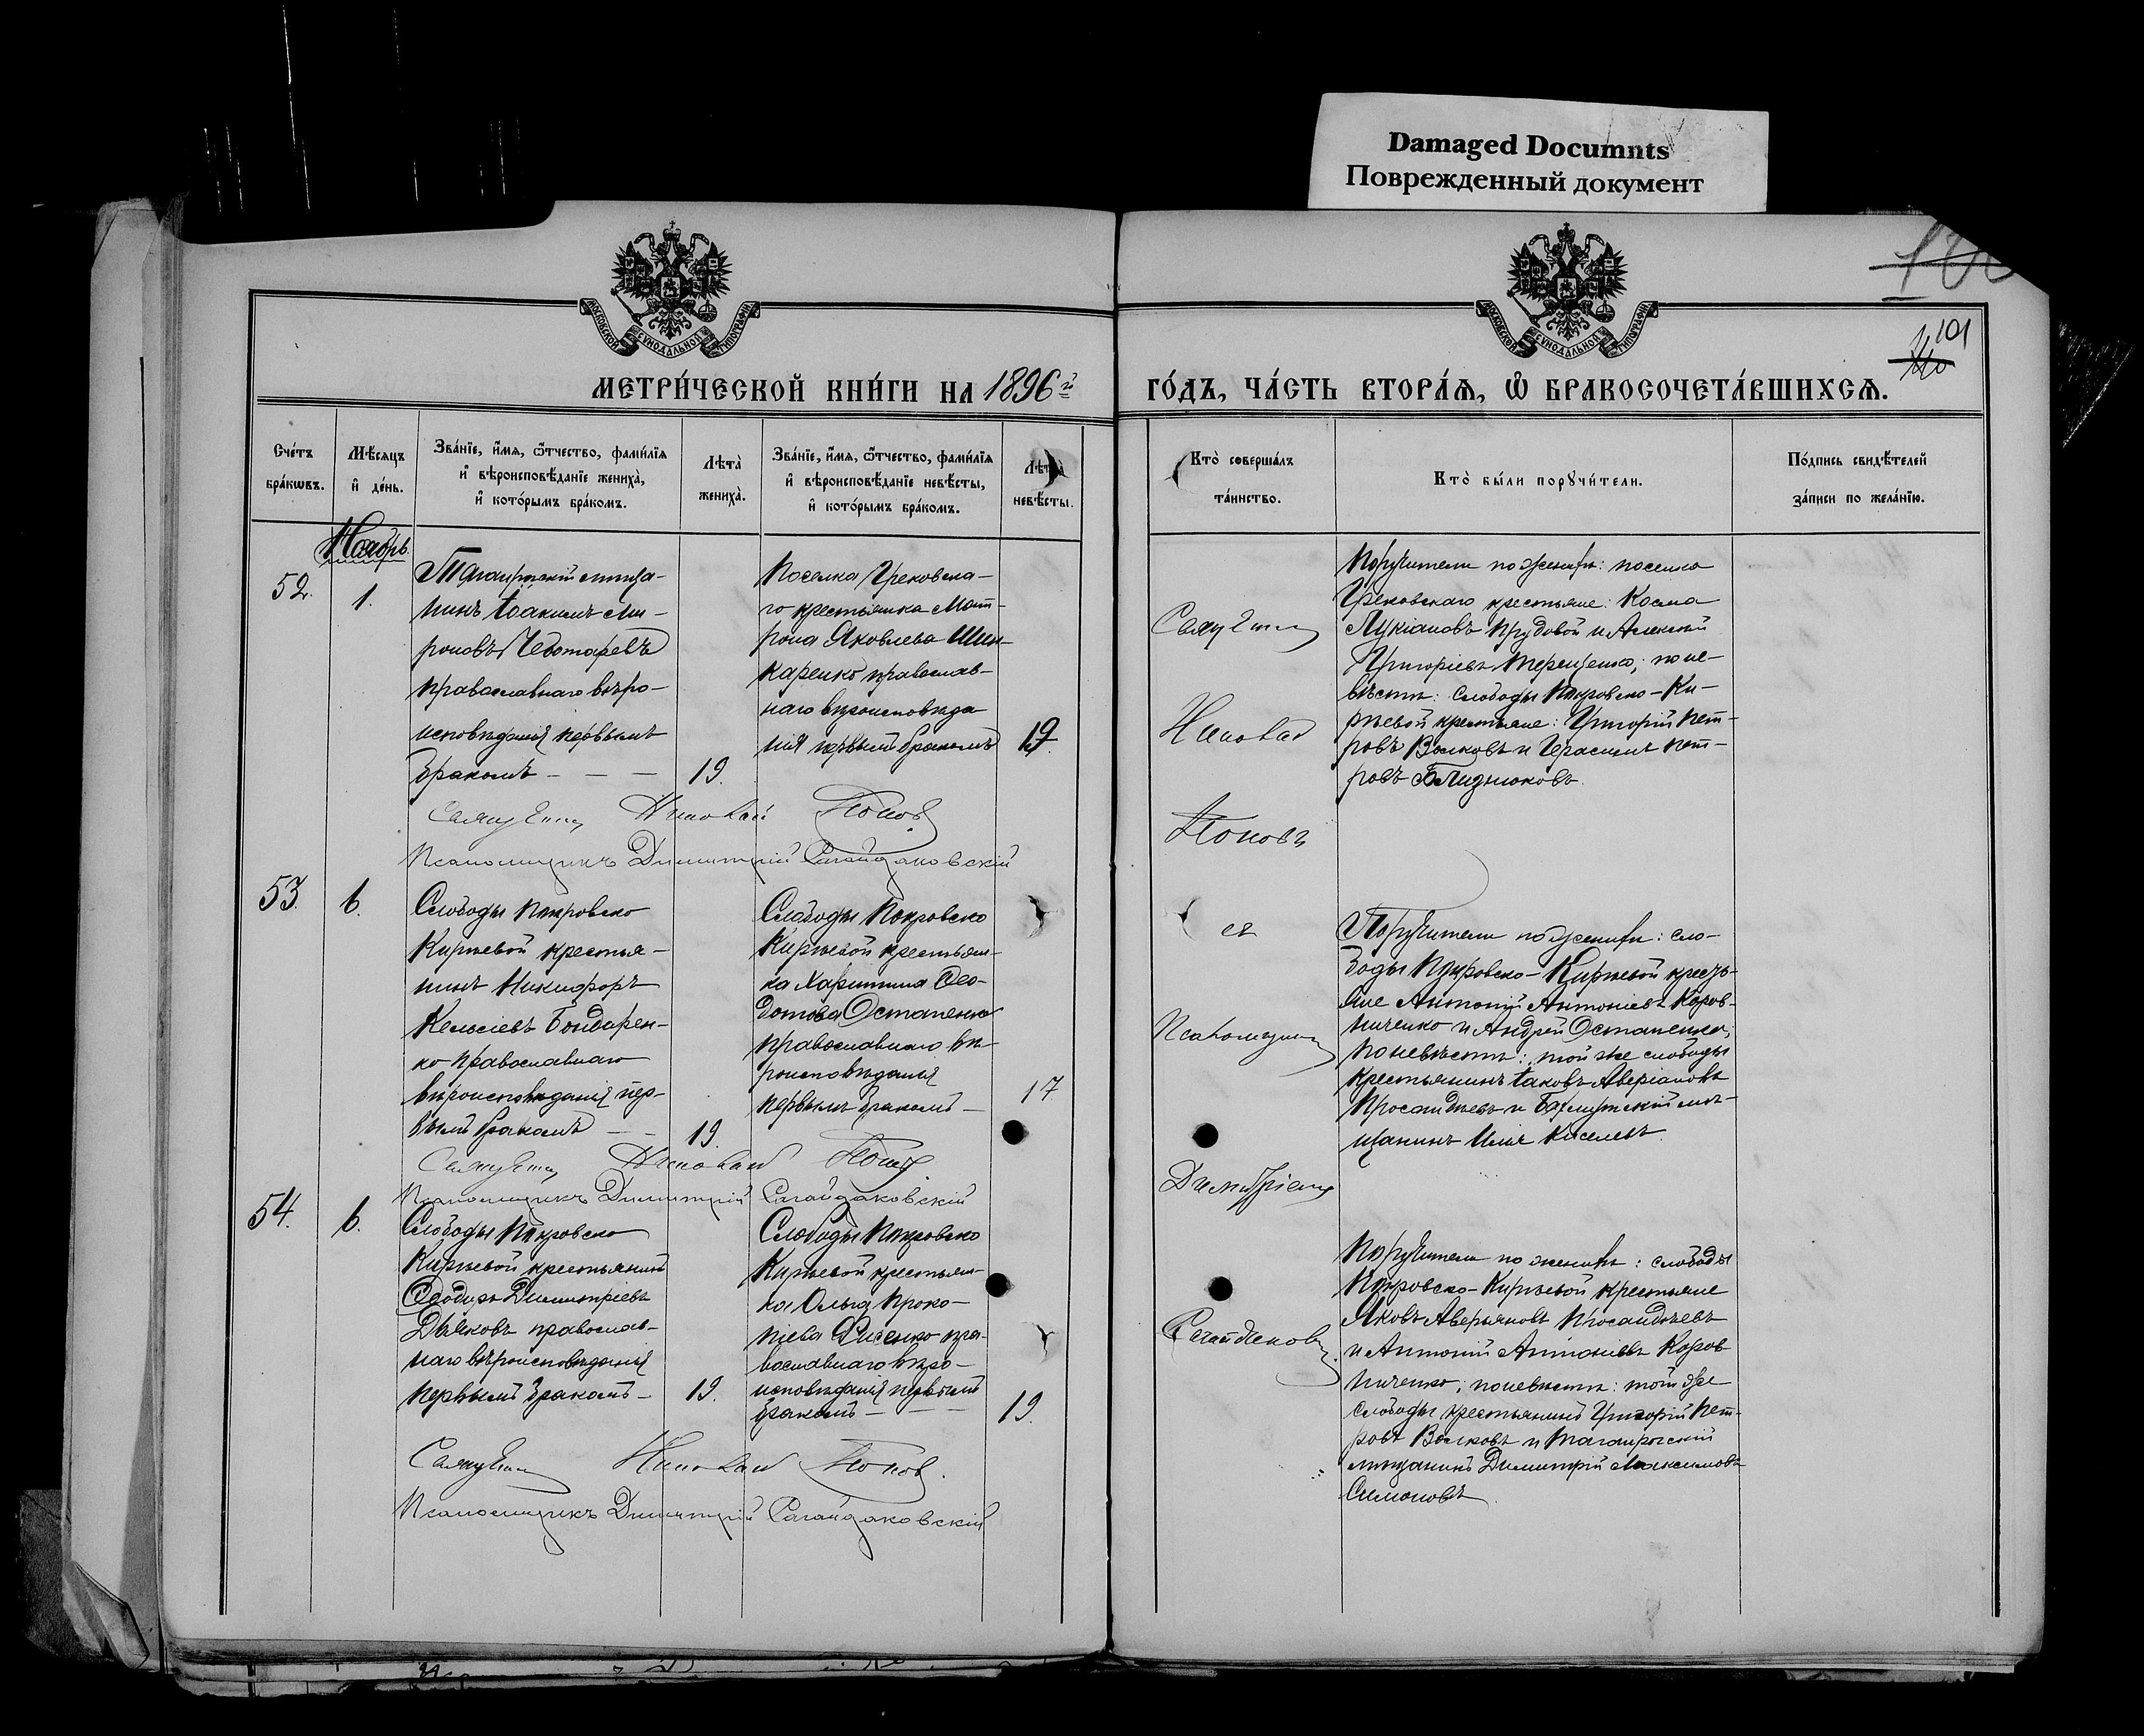 Damaged Documnts
Поврежденный документ
МОСКОВСКОЙ СѴНОДАЛЬНОЙ ТИПОГРАФІИ
МОСКОВСКОЙ СѴНОДАЛЬНОЙ ТИПОГРАФІИ
101
МЕТРИ́ЧЕСКОЙ КНИ́ГИ НА 1896й
ГО́ДЪ, ЧА́СТЬ ВТОРА́Я, Ѿ БРАКОСОЧЕТА́ВШИХСЯ.
Сче́тъ
бра́кωвъ.
Мѣ́сяцъ
и҆ де́нь.
Зва́нїе, и҆́мя, ѻ҆́тчество, фами́лїя
и҆ вѣроисповѣ́данїе жениха̀,
и҆ кото́рымъ бра́комъ.
Лѣта̀
жениха̀.
Зва́нїе, и҆́мя, ѻ҆́тчество, фами́лїя
и҆ вѣроисповѣ́данїе невѣ́сты,
и҆ кото́рымъ бра́комъ.
Лѣта̀
невѣ́сты.
Кто̀ соверша́лъ
та́инство.
Кто̀ бы́ли порꙋчи́тели.
По́дпись свидѣ́телей
за́писи по жела́нїю.
Ноябрь
52.
1.
Таганрогскій мѣща-
нинъ Іоакимъ Ми-
роновъ Чеботаревъ
православнаго вѣро-
исповѣданія первымъ
бракомъ — — —
19.
Поселка Грековска-
го крестьянка Мат-
рона Яковлева Шин-
каренко православ-
наго вѣроисповѣда
нія первымъ бракомъ
19.
Священ
Николай
Поповъ
Поручители по женихѣ: поселка
Грековскаго крестьяне: Косма
Лукіановъ Прудовой и Алексій
Григоріевъ Терещенко; по не-
вѣстѣ: слободы Покровско-Ки-
рѣевой крестьяне: Григорій Пет-
ровъ Волковъ и Герасимъ Пет-
ровъ Близнюковъ.
Священ Николай Попов
Псаломщикъ Димитрій Сагайдаковскій
53.
6.
Слободы Покровско
Кирѣевой крестья-
нинъ Никифоръ
Кельсіевъ Бондарен-
ко православнаго
вѣроисповѣданія пер-
вымъ бракомъ — —
19.
Слободы Покровско
Кирѣевой крестьян-
ка Харитина Ѳео-
дотова Остапенко
православнаго вѣ-
роисповѣданія
первымъ бракомъ —
17
съ
Псаломщик
Димитріем
Сагайдаков
Поручители по женихѣ: сло-
боды Покровско-Кирѣевой кресть-
яне Антоній Антоніевъ Коров-
ниченко и Андрей Остапенко;
по невѣстѣ: той же слободы
крестьянинъ Іаковъ Аверіановъ
Просандѣевъ и Бахмутскій мѣ-
щанинъ Илія Киселевъ.
Священ Николай Попов
Псаломщикъ Димитрій Сагайдаковскій
54.
6.
Слободы Покровско
Кирѣевой крестьянинъ
Ѳеодоръ Димитріевъ
Дьяковъ православ-
наго вѣроисповѣданія
первымъ бракомъ —
19.
Слободы Покровско
Кирѣевой крестьян-
ка Ольга Проко-
піева пра-
вославнаго вѣро-
исповѣданія первымъ
бракомъ — — —
19.
Поручители по женихѣ: слободы
Покровско-Кирѣевой крестьяне
Яковъ Аверьяновъ Просандѣевъ
и Антоній Антоніевъ Коров
ниченко; по невѣстѣ: той же
слободы крестьянинъ Григорій Пет-
ровъ Волковъ и Таганрогскій
мѣщанинъ Димитрій Максимовъ
Симоновъ.
Священ Николай Попов.
Псаломщикъ Димитрій Сагайдаковскій